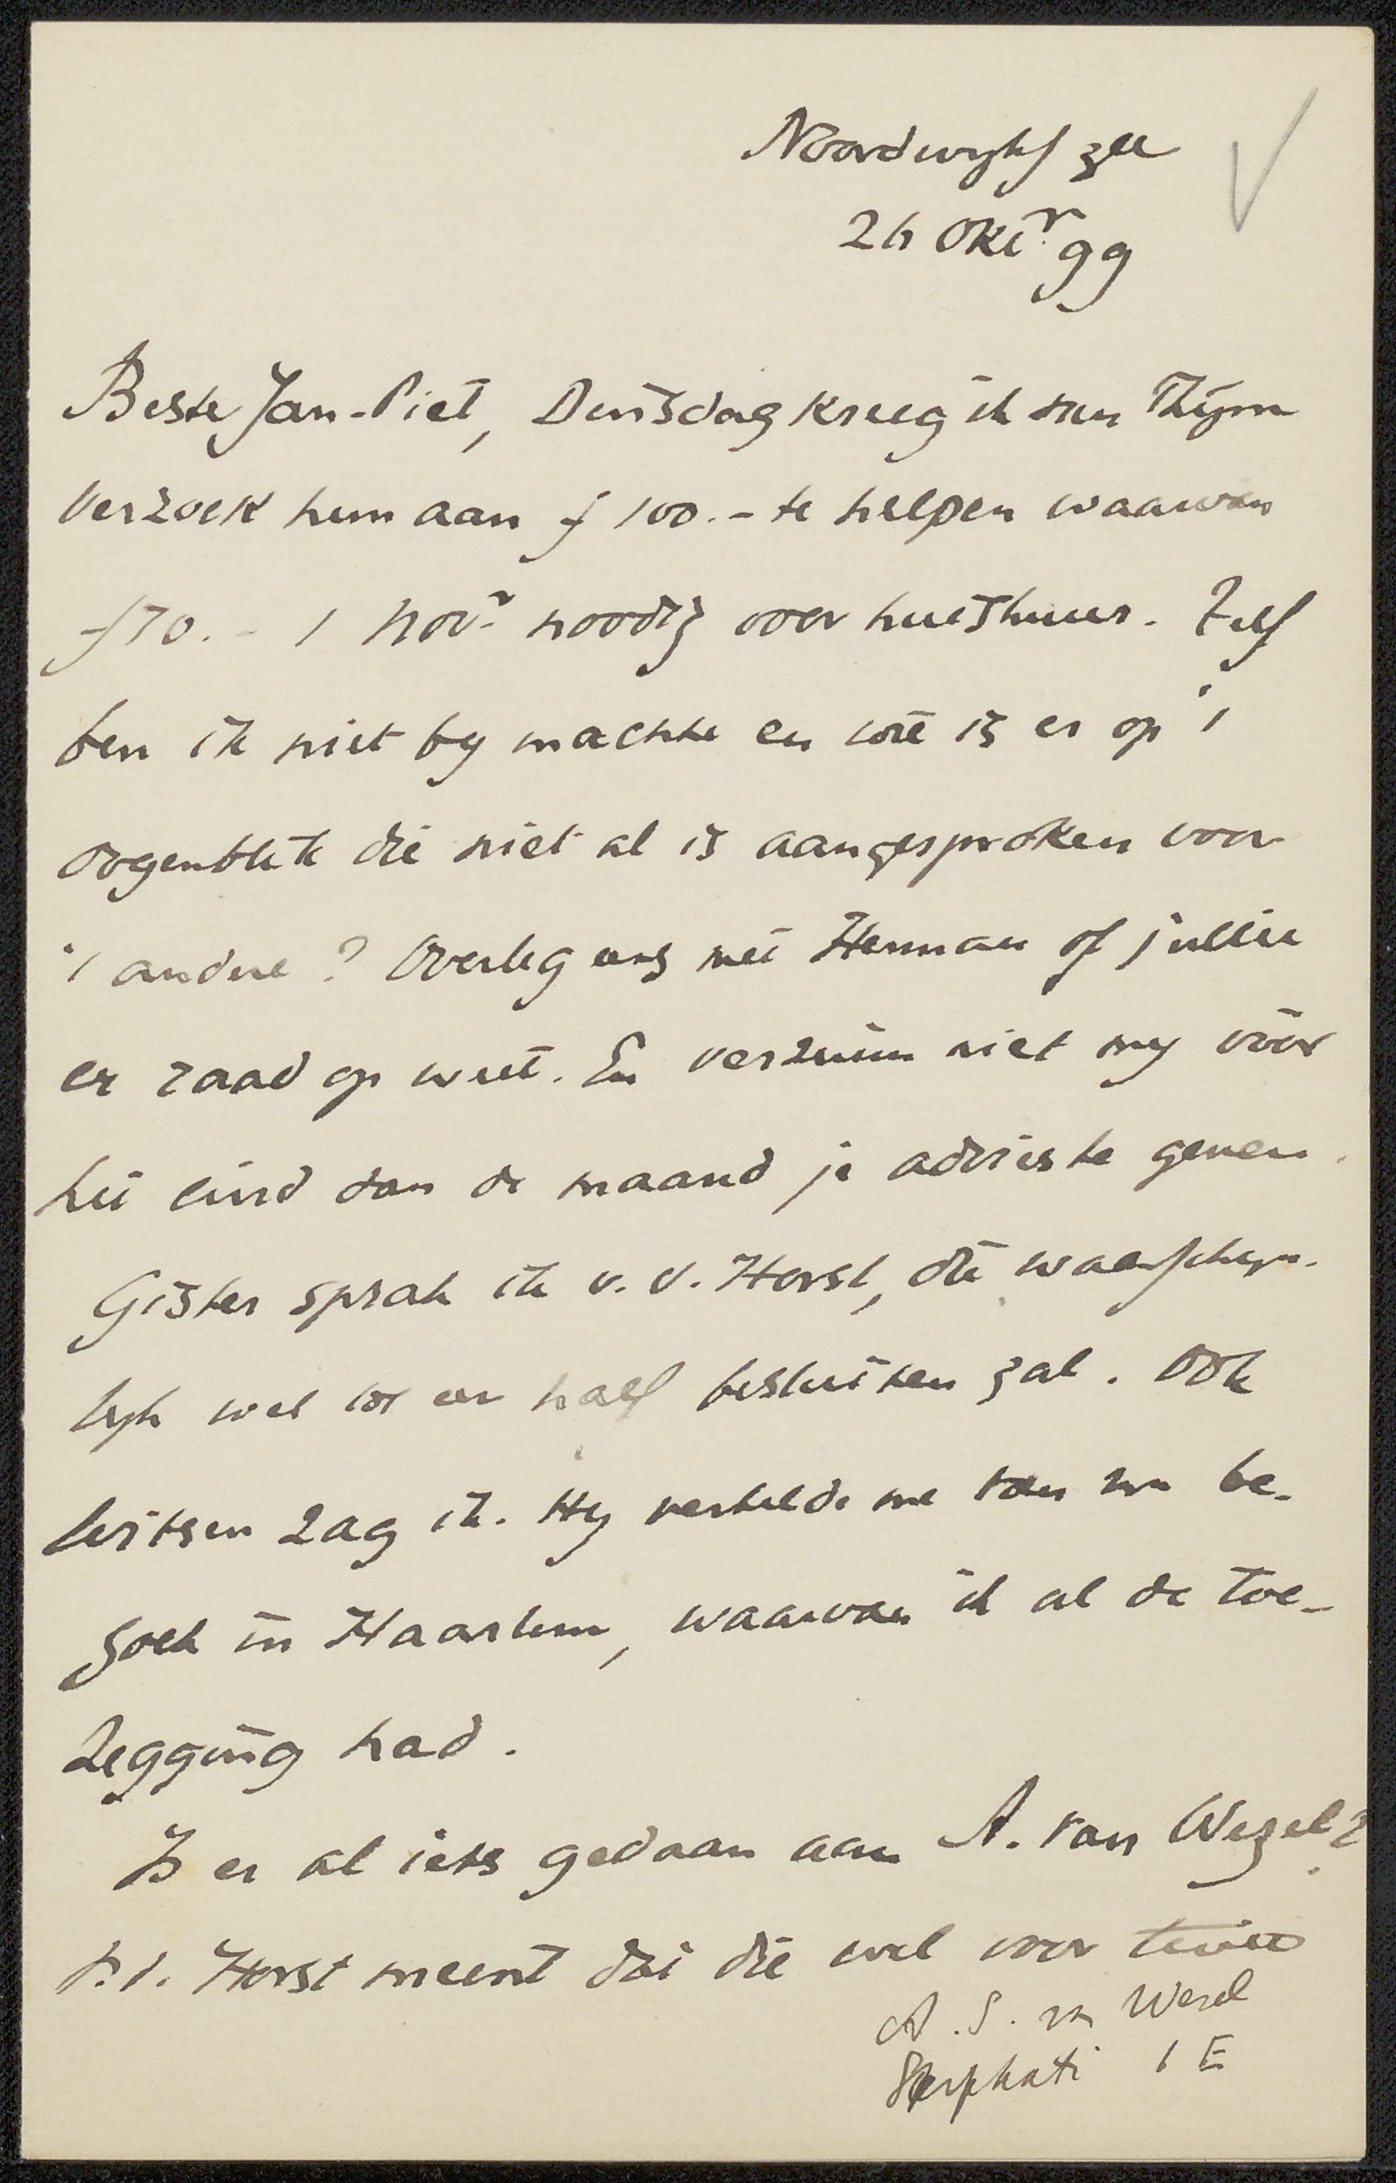 Noordwyk / zee
26 Oktr. 99
Beste Jan-Piet, Dinsdag kreeg ik van Thijm
verzoek hem aan f 100.- te helpen waarvan
f 70.- 1 Novr. noodig voor huishuur. Zelf
ben ik niet by machte en wie is er op 't
oogenblik die niet al is aangesproken voor
't andere? Overleg eens met Herman of jullie
er raad op weet. En verzuim niet my vóór
het eind van de maand je advies te geven.
Gister sprak ik v. d. Horst, die waarschyn-
lyk wel tot een half besluiten zal. Ook
Witsen zag ik. Hy vertelde me van uw be-
zoek in Haarlem, waarvan ik al de toe-
zegging had.
Is er al iets gedaan aan A. van Wezel?
v. d. Horst meent dat die wel voor twee
A. S. v. Wesel
Sarphati 1 E